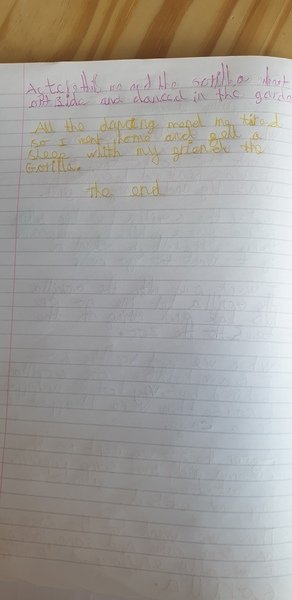 me and the Gorilla went
out side and danced in the gardn
All the dancing mand me tired
so I went home and fell a
sleep whith my friend the
Gorilla.
the end